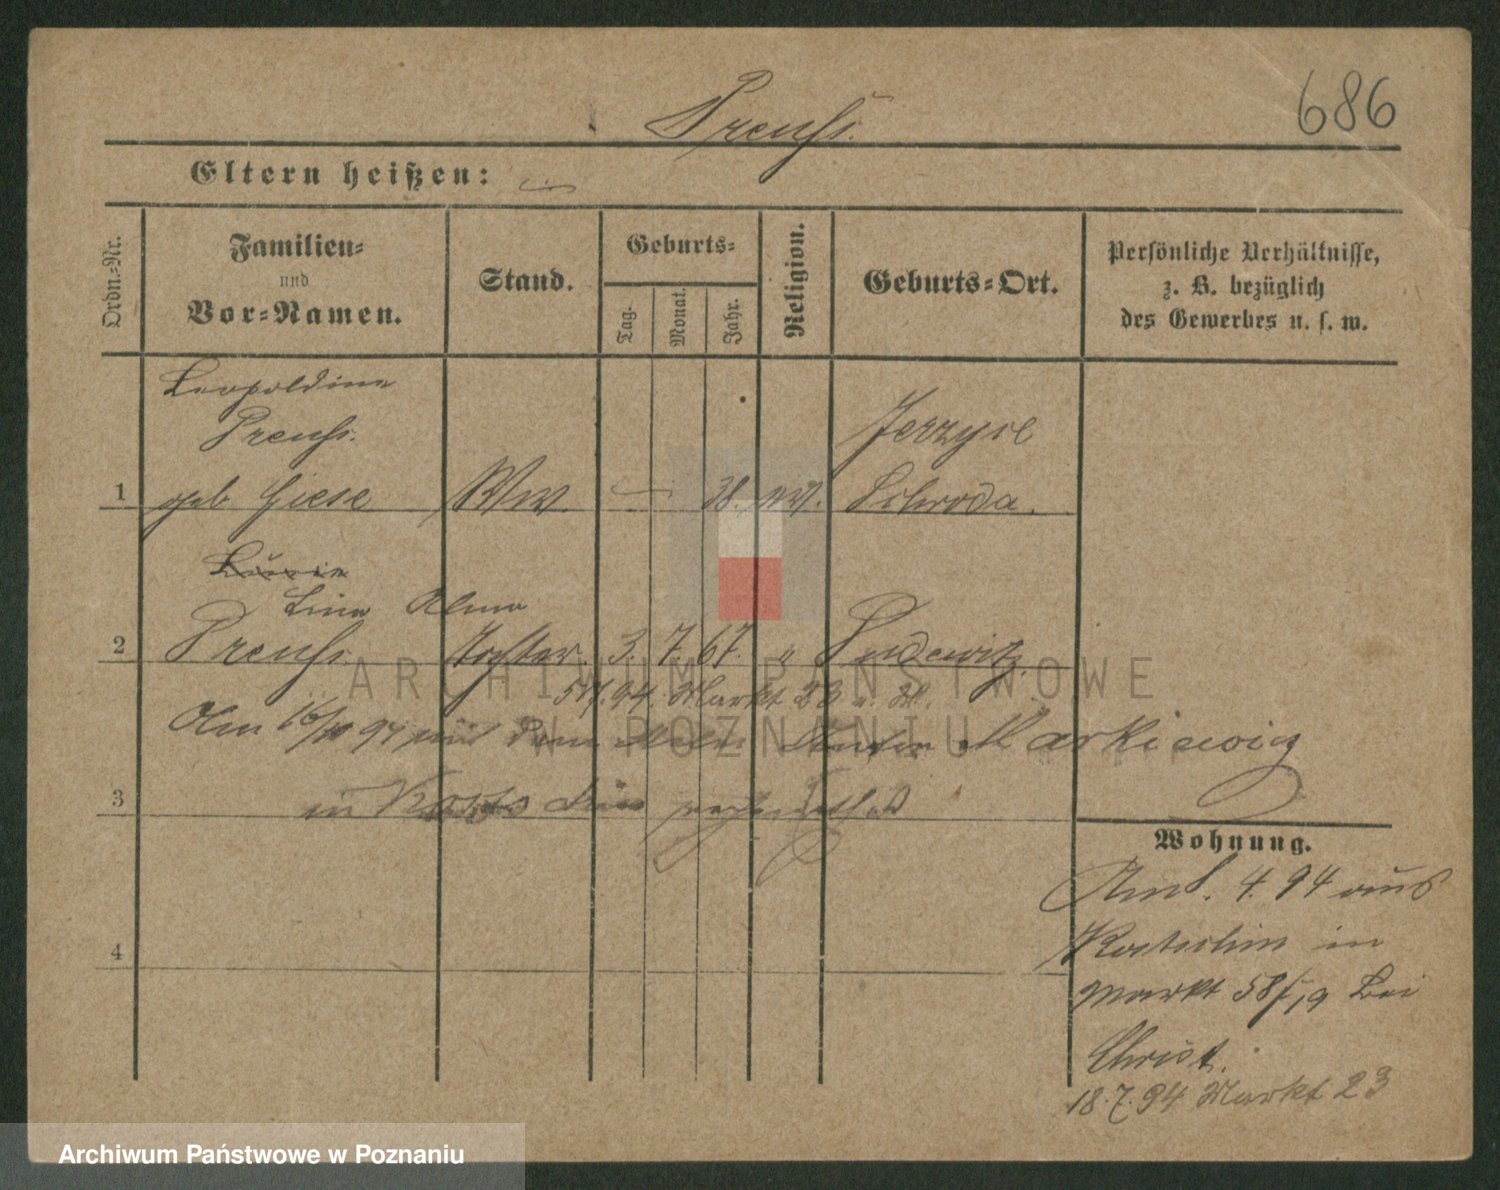 686
Preuß.
Eltern heißen:
Ordn.-Nr.
Familien-
und
Vor-Namen.
Stand.
Geburts-
Tag.
Monat.
Jahr.
Religion.
Geburts-Ort.
Persönliche Verhältnisse,
z. B. bezüglich
des Gewerbes u. s. w.
Leopoldine
Preuß.
Jerzyce
1 geb. Giese Ww. 38. ev. Schroda.
Lina Alma
2 Preuß. Tochter. 3. 7. 67. " Pudewitz
94. Markt 23
Am 16/10 97 mit dem Markiewicz
3 in
Wohnung.
4. 94 aus
4 Kostschin in
Markt 58 bei
Christ.
18.7.94 Markt 23
ARCHIWUM PAŃSTWOWE
W POZNANIU
Archiwum Państwowe w Poznaniu